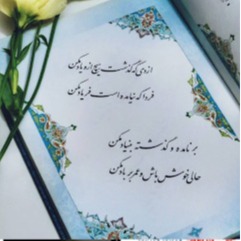 از دی که گذشت هیچ ازو یاد مکن
فردا که نیامده است فریاد مکن
بر نامده و گذشته بنیاد مکن
حالی خوش باش و عمر بر باد مکن